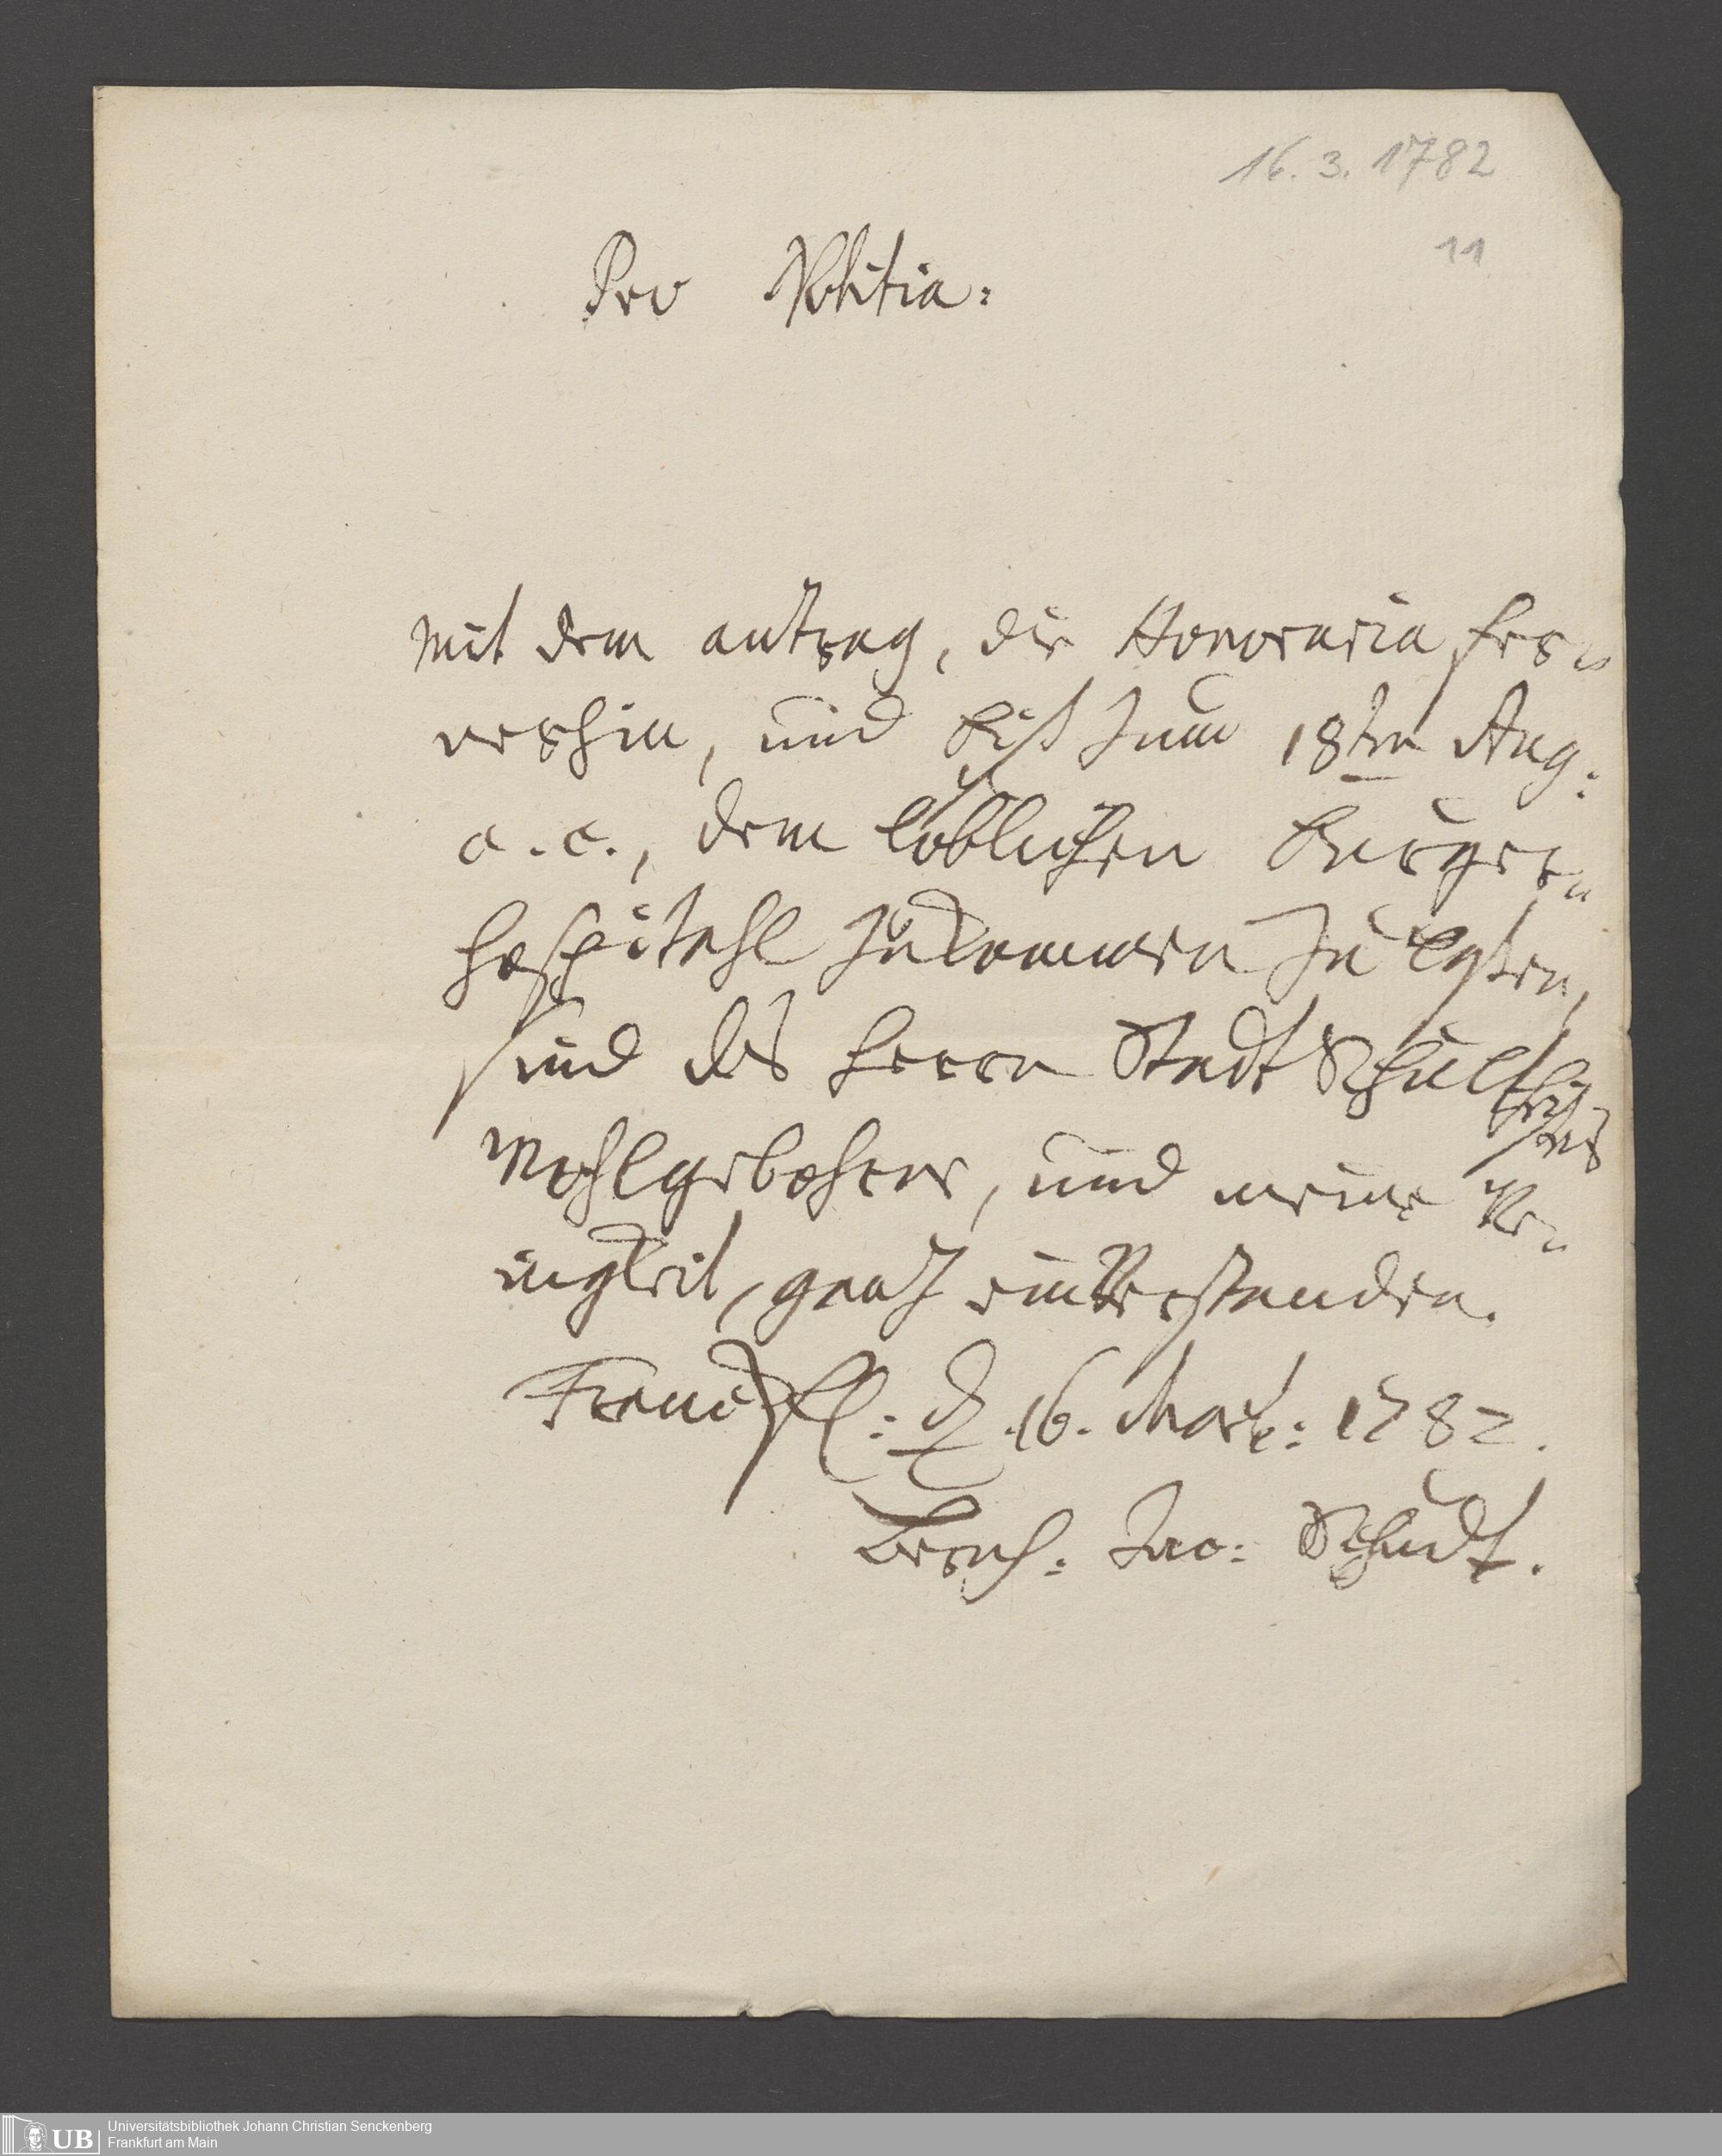 16. 3. 1782
11
Pro Notitia:
Mit dem antrag, die Honoraria fer¬
nerhin, und biß zum 18ten Aug:
a. c., dem löblichen Burger¬
hospitahl zukommen zu laßen,
sind des Herrn Stadt Schulthei¬
ßen
Wohlgebohren, und meine We¬
nigkeit, gantz einverstanden.
Franckf: d. 16. Mart: 1782.
Jac: Schudt.
UB Universitätsbibliothek Johann Christian Senckenberg
Frankfurt am Main